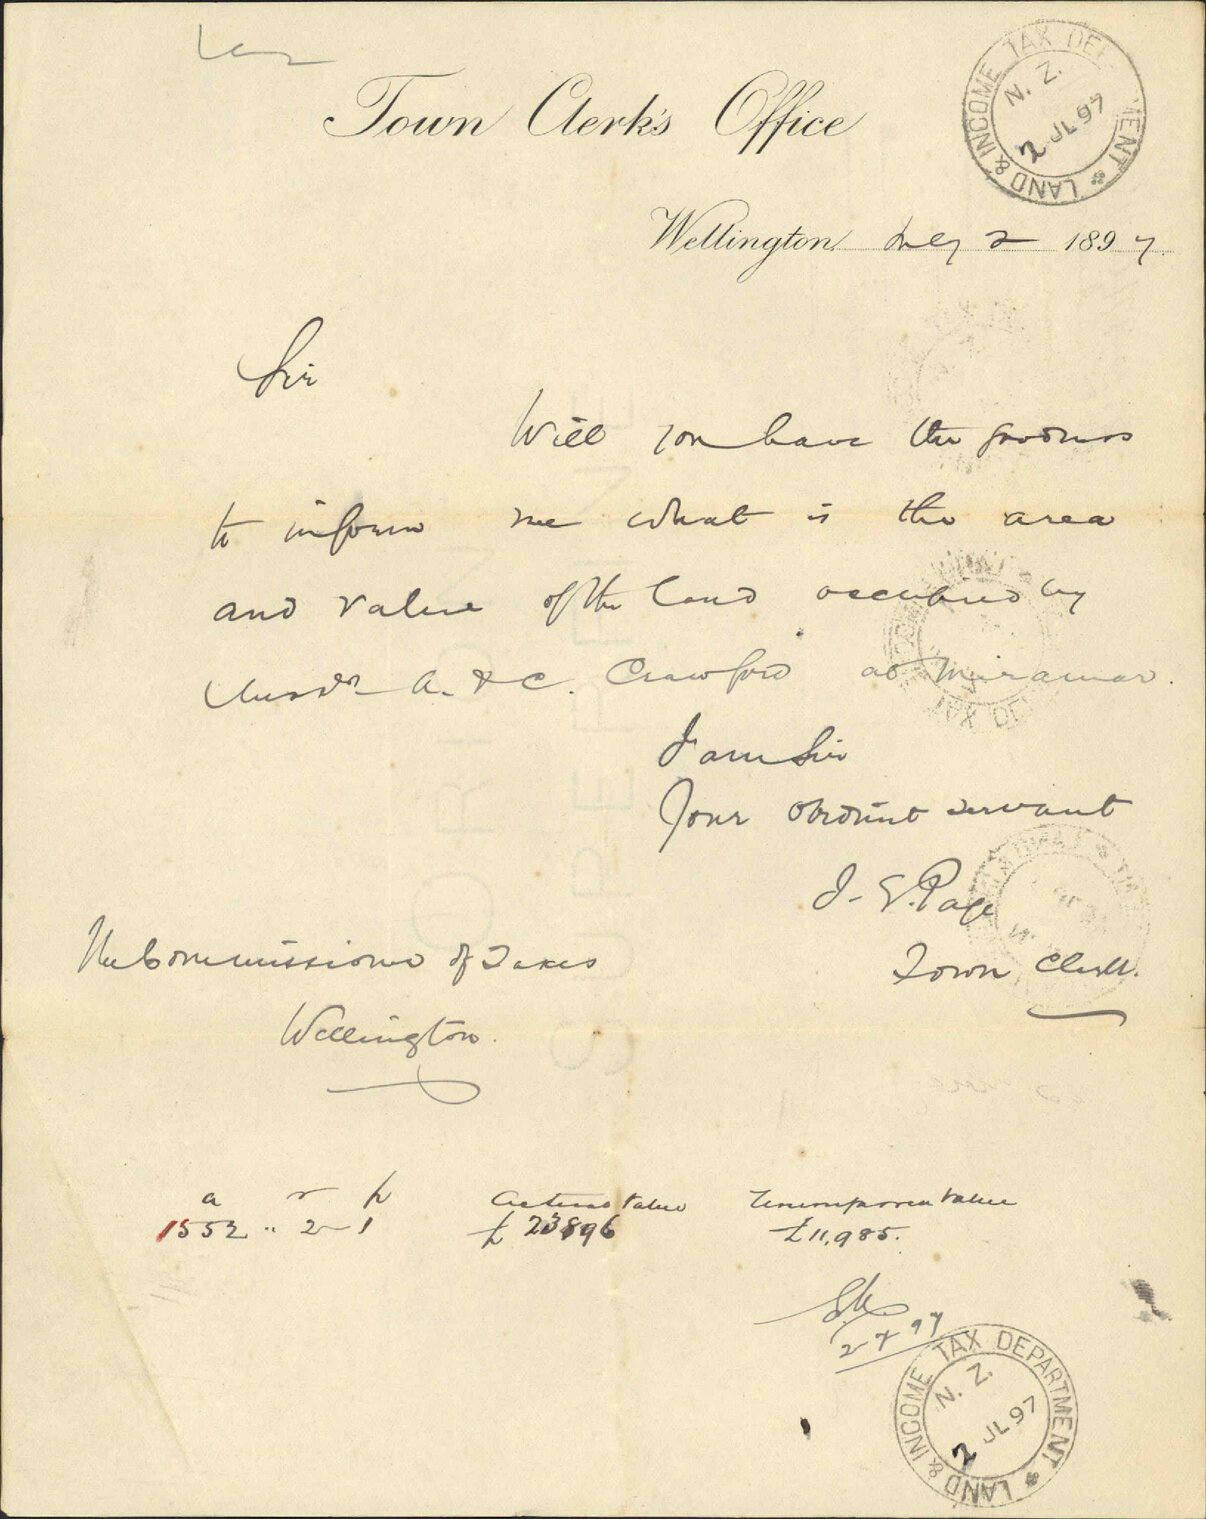 Town Clerk's Office
LAND & INCOME TAX DEPARTMENT
N. Z.
2 JL 97
Wellington July 2 1897.
Sir
Will you have the goodness
to inform me what is the area
and value of the land occupied by
Messrs A. & C. Crawford at Miramar.
I am Sir
Your obedient servant
J. E. Page
Town Clerk.
The Commissioner of Taxes
Wellington.
a r p Actual Value Unimproved Value
1552 .. 2 - 1 £ 23896 £11,985.
2 7 97
LAND & INCOME TAX DEPARTMENT
N. Z.
2 JL 97